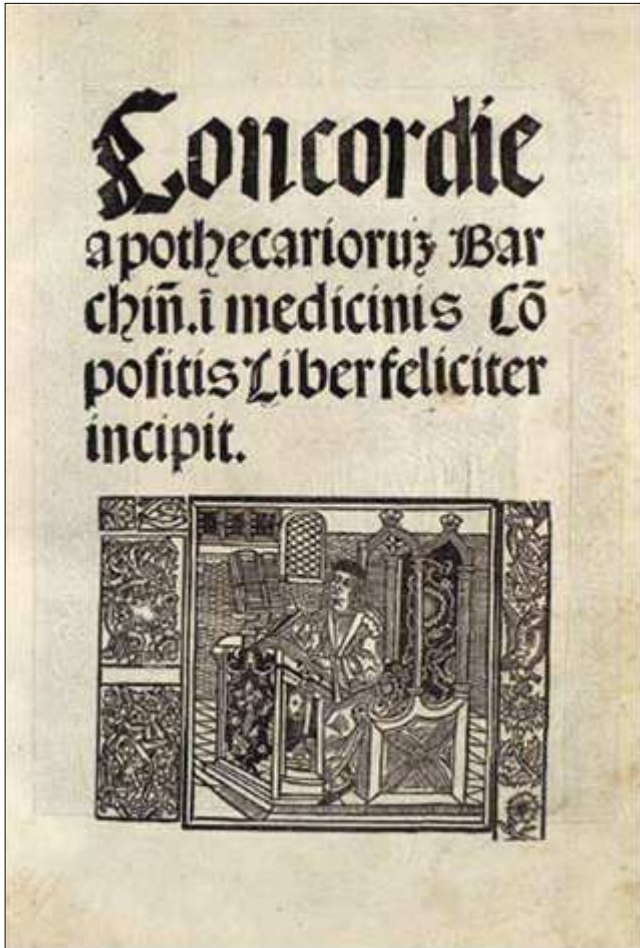 Concordie
apothecarioruꝫ Bar
chin̄.ī medicinis Cō
positis Liber feliciter
incipit.